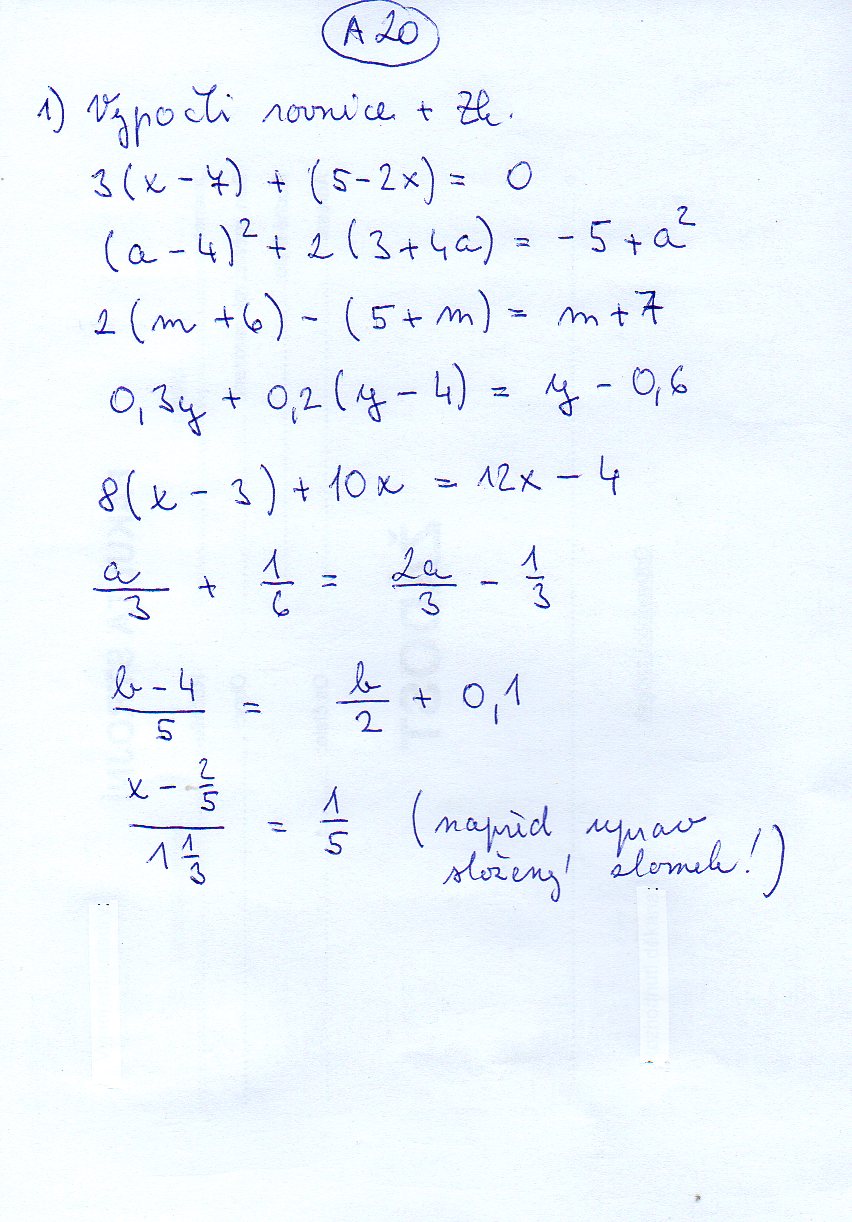 A20
1) Vypočti rovnice + Zk.
3(x - 7) + (5 - 2x) = 0
(a - 4)² + 2(3 + 4a) = -5 + a²
2(m + 6) - (5 + m) = m + 7
0,3y + 0,2(y - 4) = y - 0,6
8(x - 3) + 10x = 12x - 4
a/3 + 1/6 = 2a/3 - 1/3
(b - 4)/5 = b/2 + 0,1
(x - 2/5)/(1 1/3) = 1/5 (napřed uprav
složený zlomek!)